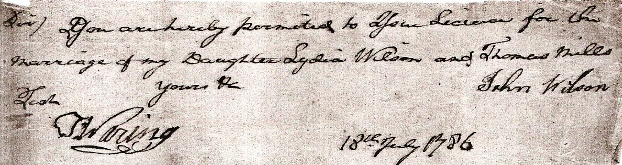 Sir) You are hereby permited to Issue Licience for the
marriage of my Daughter Lydia Wilson and Thomas Mills
Yours &c John Wilson
Test
18th July 1786